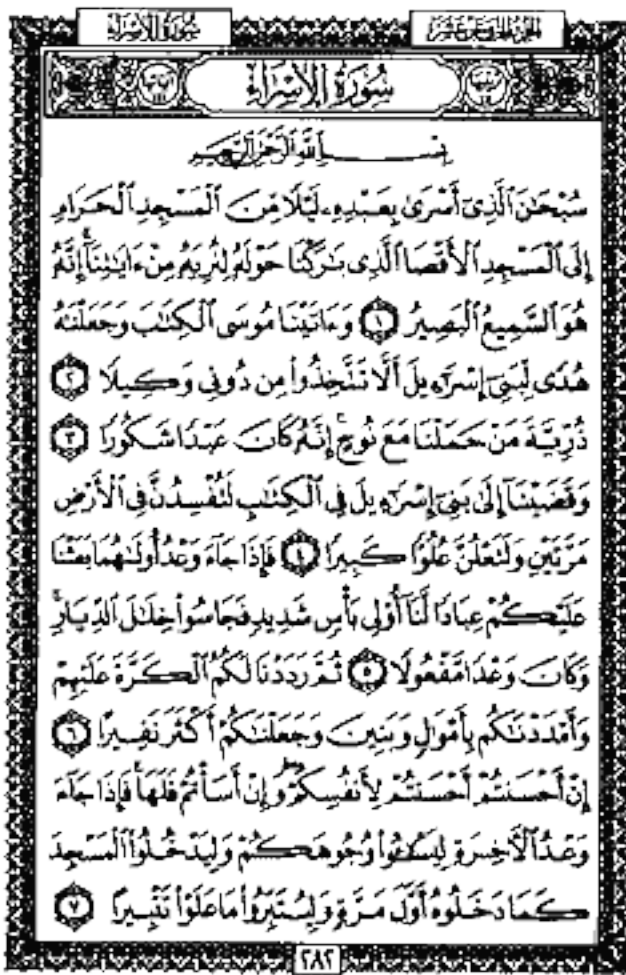 سُورَةُ الإِسْرَاءِ
الجزء الخامس عشر
سُورَةُ الإِسْرَاءِ
بِسْمِ ٱللَّهِ ٱلرَّحْمَٰنِ ٱلرَّحِيمِ
سُبْحَٰنَ ٱلَّذِىٓ أَسْرَىٰ بِعَبْدِهِۦ لَيْلًا مِّنَ ٱلْمَسْجِدِ ٱلْحَرَامِ
إِلَى ٱلْمَسْجِدِ ٱلْأَقْصَا ٱلَّذِى بَٰرَكْنَا حَوْلَهُۥ لِنُرِيَهُۥ مِنْ ءَايَٰتِنَآ ۚ إِنَّهُۥ
هُوَ ٱلسَّمِيعُ ٱلْبَصِيرُ ١ وَءَاتَيْنَا مُوسَى ٱلْكِتَٰبَ وَجَعَلْنَٰهُ
هُدًى لِّبَنِىٓ إِسْرَٰٓءِيلَ أَلَّا تَتَّخِذُوا۟ مِن دُونِى وَكِيلًا ٢
ذُرِّيَّةَ مَنْ حَمَلْنَا مَعَ نُوحٍ ۚ إِنَّهُۥ كَانَ عَبْدًا شَكُورًا ٣
وَقَضَيْنَآ إِلَىٰ بَنِىٓ إِسْرَٰٓءِيلَ فِى ٱلْكِتَٰبِ لَتُفْسِدُنَّ فِى ٱلْأَرْضِ
مَرَّتَيْنِ وَلَتَعْلُنَّ عُلُوًّا كَبِيرًا ٤ فَإِذَا جَآءَ وَعْدُ أُولَىٰهُمَا بَعَثْنَا
عَلَيْكُمْ عِبَادًا لَّنَآ أُو۟لِى بَأْسٍ شَدِيدٍ فَجَاسُوا۟ خِلَٰلَ ٱلدِّيَارِ ۚ
وَكَانَ وَعْدًا مَّفْعُولًا ٥ ثُمَّ رَدَدْنَا لَكُمُ ٱلْكَرَّةَ عَلَيْهِمْ
وَأَمْدَدْنَٰكُم بِأَمْوَٰلٍ وَبَنِينَ وَجَعَلْنَٰكُمْ أَكْثَرَ نَفِيرًا ٦
إِنْ أَحْسَنتُمْ أَحْسَنتُمْ لِأَنفُسِكُمْ ۖ وَإِنْ أَسَأْتُمْ فَلَهَا ۚ فَإِذَا جَآءَ
وَعْدُ ٱلْءَاخِرَةِ لِيَسُۥٓـُٔوا۟ وُجُوهَكُمْ وَلِيَدْخُلُوا۟ ٱلْمَسْجِدَ
كَمَا دَخَلُوهُ أَوَّلَ مَرَّةٍ وَلِيُتَبِّرُوا۟ مَا عَلَوْا۟ تَتْبِيرًا ٧
٢٨٢